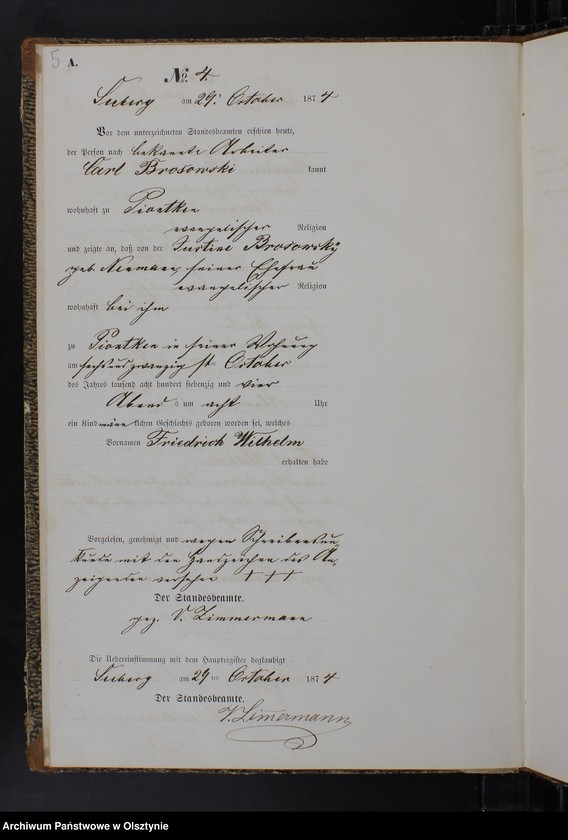 5
A.
No. 4.
Seeberg am 29. October 1874
Vor dem unterzeichneten Standesbeamten erschien heute,
der Person nach bekannte Arbeiter
Carl Brosowski kannt
wohnhaft zu Piontken
evangelischer Religion
und zeigte an, daß von der Justine Brosowsky
geb. Niemann, seiner Ehefrau
evangelischer Religion
wohnhaft bei ihm
zu Piontken in seiner Wohnung
am sechsundzwanzig st October
des Jahres tausend acht hundert siebenzig und vier
Abend s um acht Uhr
ein Kind männlichen Geschlechts geboren worden sei, welches
Vornamen Friedrich Wilhelm
erhalten habe
Vorgelesen, genehmigt und wegen Schreibensun
kunde mit den Handzeichen des An
zeigenden versehen +++
Der Standesbeamte.
gez. V. Zimmermann
Die Uebereinstimmung mit dem Hauptregister beglaubigt
Seeberg am 29 ten October 1874
Der Standesbeamte.
V. Zimmermann
Archiwum Państwowe w Olsztynie